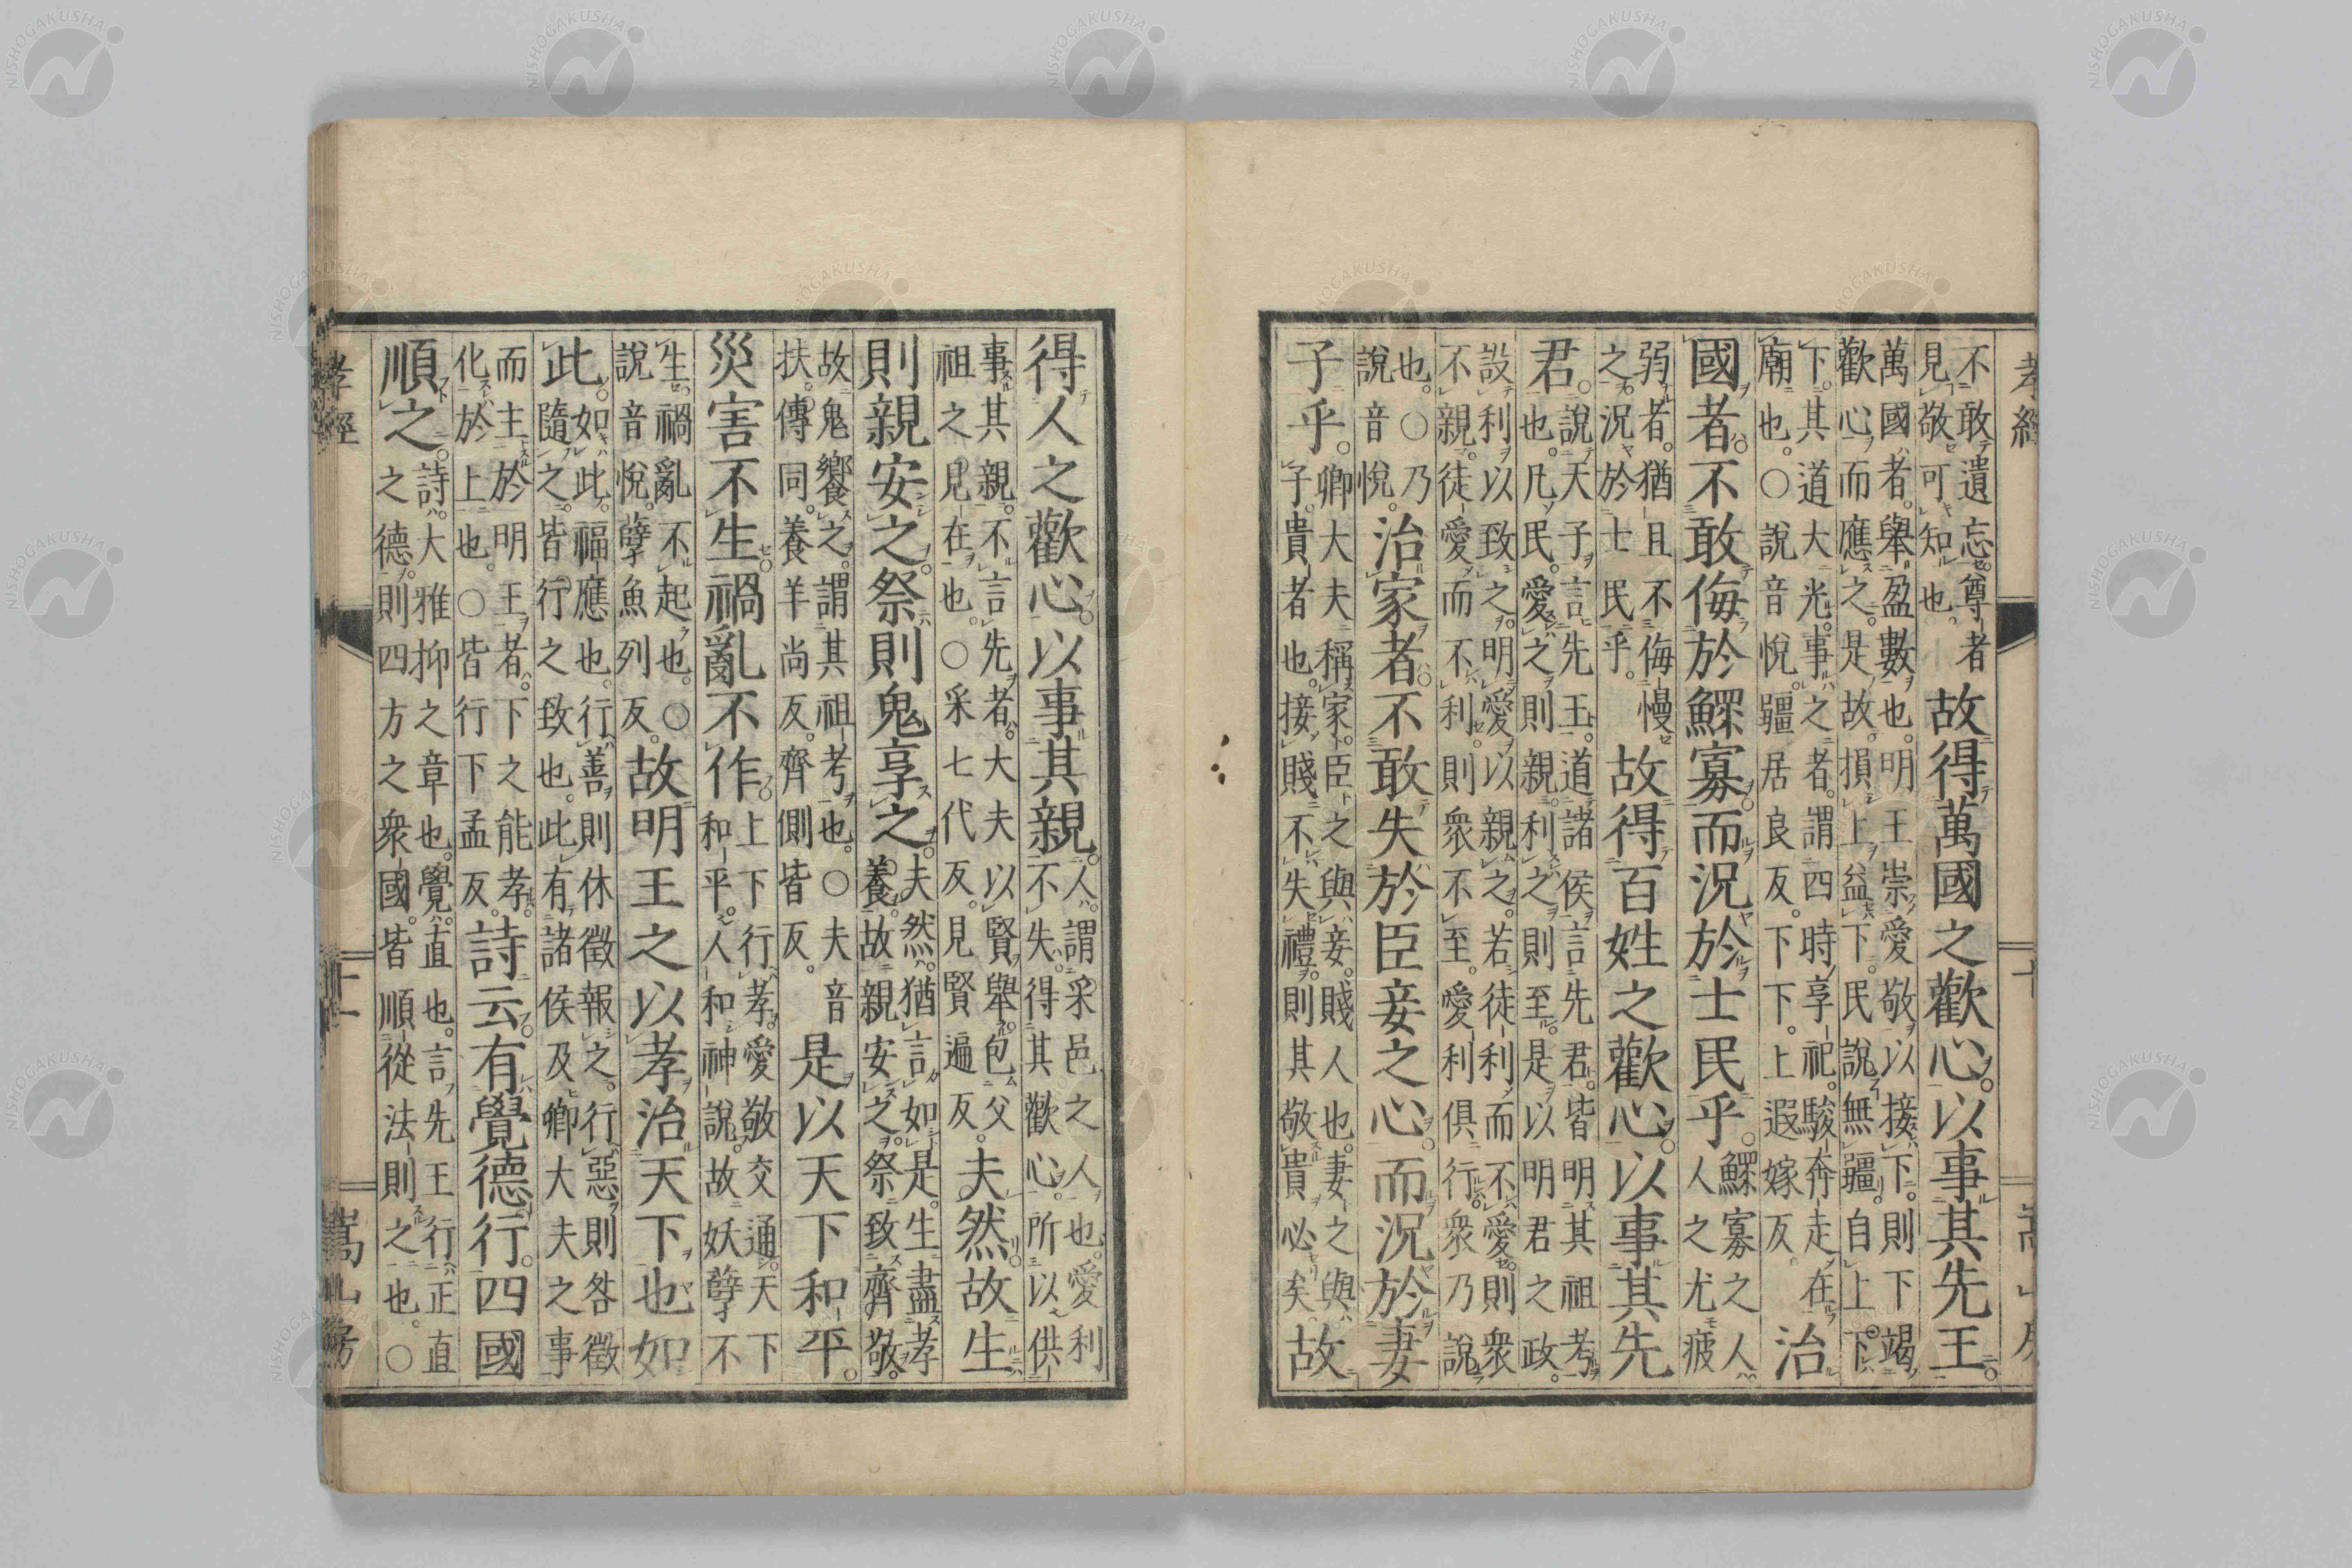 孝經
不敢遺忘尊者
見敬可知也。故得萬國之歡心。以事其先王。
萬國者。舉盈數也。明王崇愛敬以接下。則下竭
歡心而應之。是故損上益下。民說無疆。自上下
下。其道大光。事之者。謂四時享祀。駿奔走在
廟也。○說音悅。疆居良反。下下。上遐嫁反。治
國者。不敢侮於鰥寡。而況於士民乎。鰥寡之人。
人之尤疲
弱者。猶且不侮慢
之。況於士民乎。故得百姓之歡心。以事其先
君。說天子言先王。道諸侯言先君。皆明其祖考
也。凡民。愛之則親。利之則至。是以明君之政。
設利以致之。明愛以親之。若徒利而不愛。則衆
不親。徒愛而不利。則衆不至。愛利俱行。衆乃說
也。○乃
說音悅。治家者。不敢失於臣妾之心。而況於妻
子乎。卿大夫稱家。臣之與妾。賤人也。妻之與
子。貴者也。接賤不失禮。則其敬貴必矣。故
得人之歡心。以事其親。人。謂采邑之人也。愛利
不失。得其歡心。所以供
事其親。不言先者。大夫以賢舉。包父
祖之見在也。○采七代反。見賢遍反。夫然。故生
則親安之。祭則鬼享之。夫然。猶言如是。生盡孝
養。故親安之。祭致齊敬。
故鬼饗之。謂其祖考也。○夫音
扶。傳同。養羊尚反。齊側皆反。是以天下和平。
災害不生。禍亂不作。上下行孝。愛敬交通。天下
和平。人和神說。故妖孽不
生。禍亂不起也。○
說音悅。孽魚列反。故明王之以孝治天下也如
此。如此。福應也。行善則休徵報之。行惡則咎徵
隨之。皆行之致也。此有諸侯及卿大夫之事
而主於明王者。下之能孝。
化於上也。○皆行下孟反。詩云。有覺德行。四國
順之。詩。大雅抑之章也。覺。直也。言先王行正直
之德。則四方之衆國。皆順從法則之也。○
孝經
十一
嵩山房